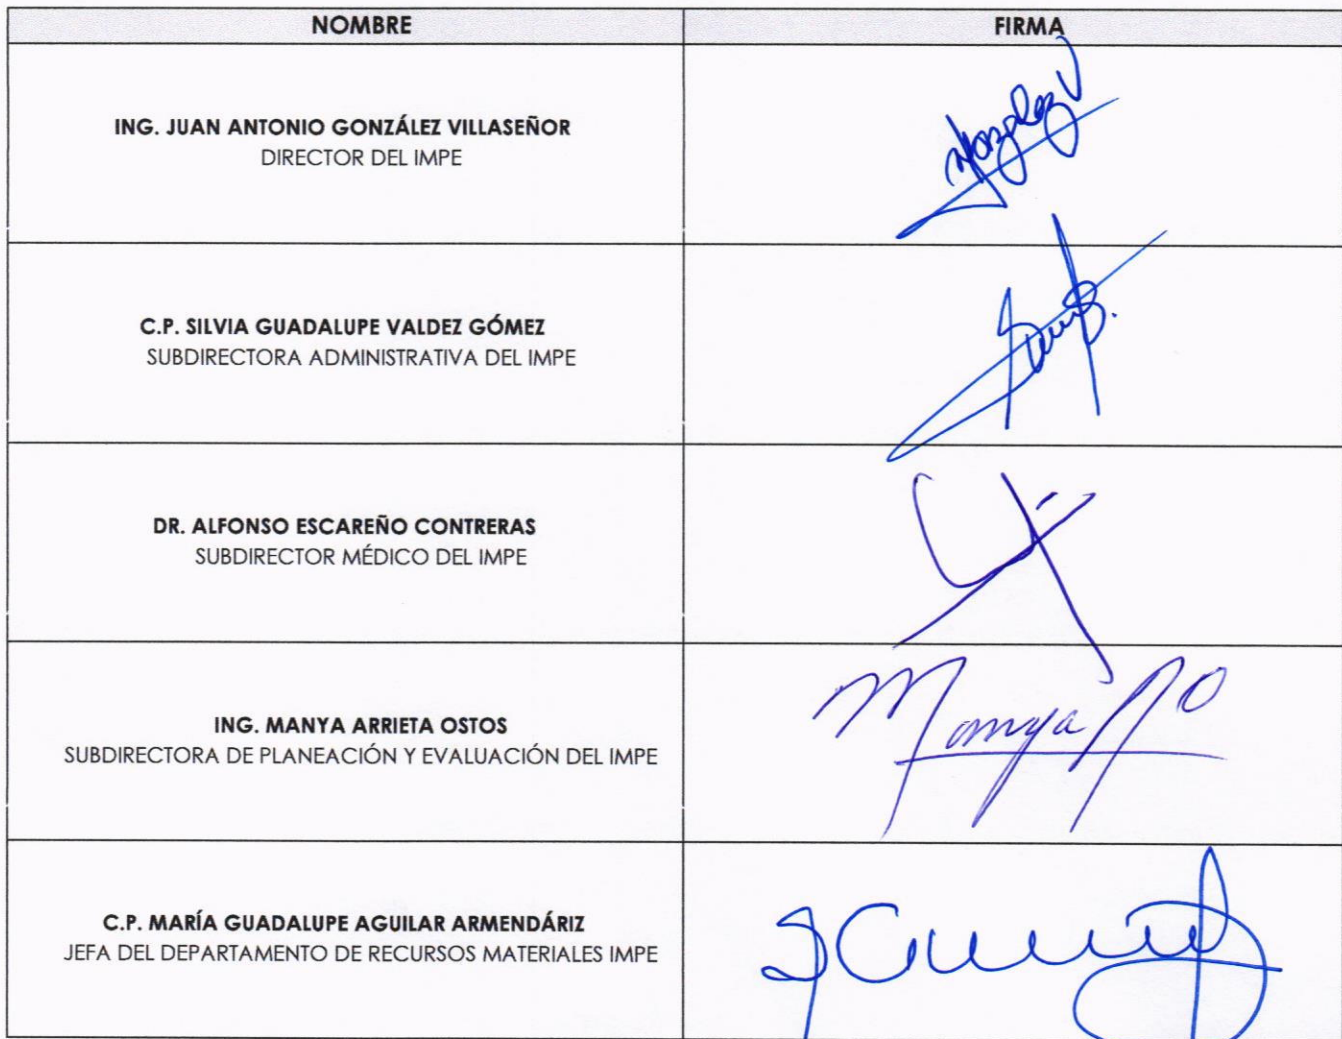 NOMBRE FIRMA
ING. JUAN ANTONIO GONZÁLEZ VILLASEÑOR
DIRECTOR DEL IMPE
González V
C.P. SILVIA GUADALUPE VALDEZ GÓMEZ
SUBDIRECTORA ADMINISTRATIVA DEL IMPE
DR. ALFONSO ESCAREÑO CONTRERAS
SUBDIRECTOR MÉDICO DEL IMPE
ING. MANYA ARRIETA OSTOS
SUBDIRECTORA DE PLANEACIÓN Y EVALUACIÓN DEL IMPE
Manya AO
C.P. MARÍA GUADALUPE AGUILAR ARMENDÁRIZ
JEFA DEL DEPARTAMENTO DE RECURSOS MATERIALES IMPE